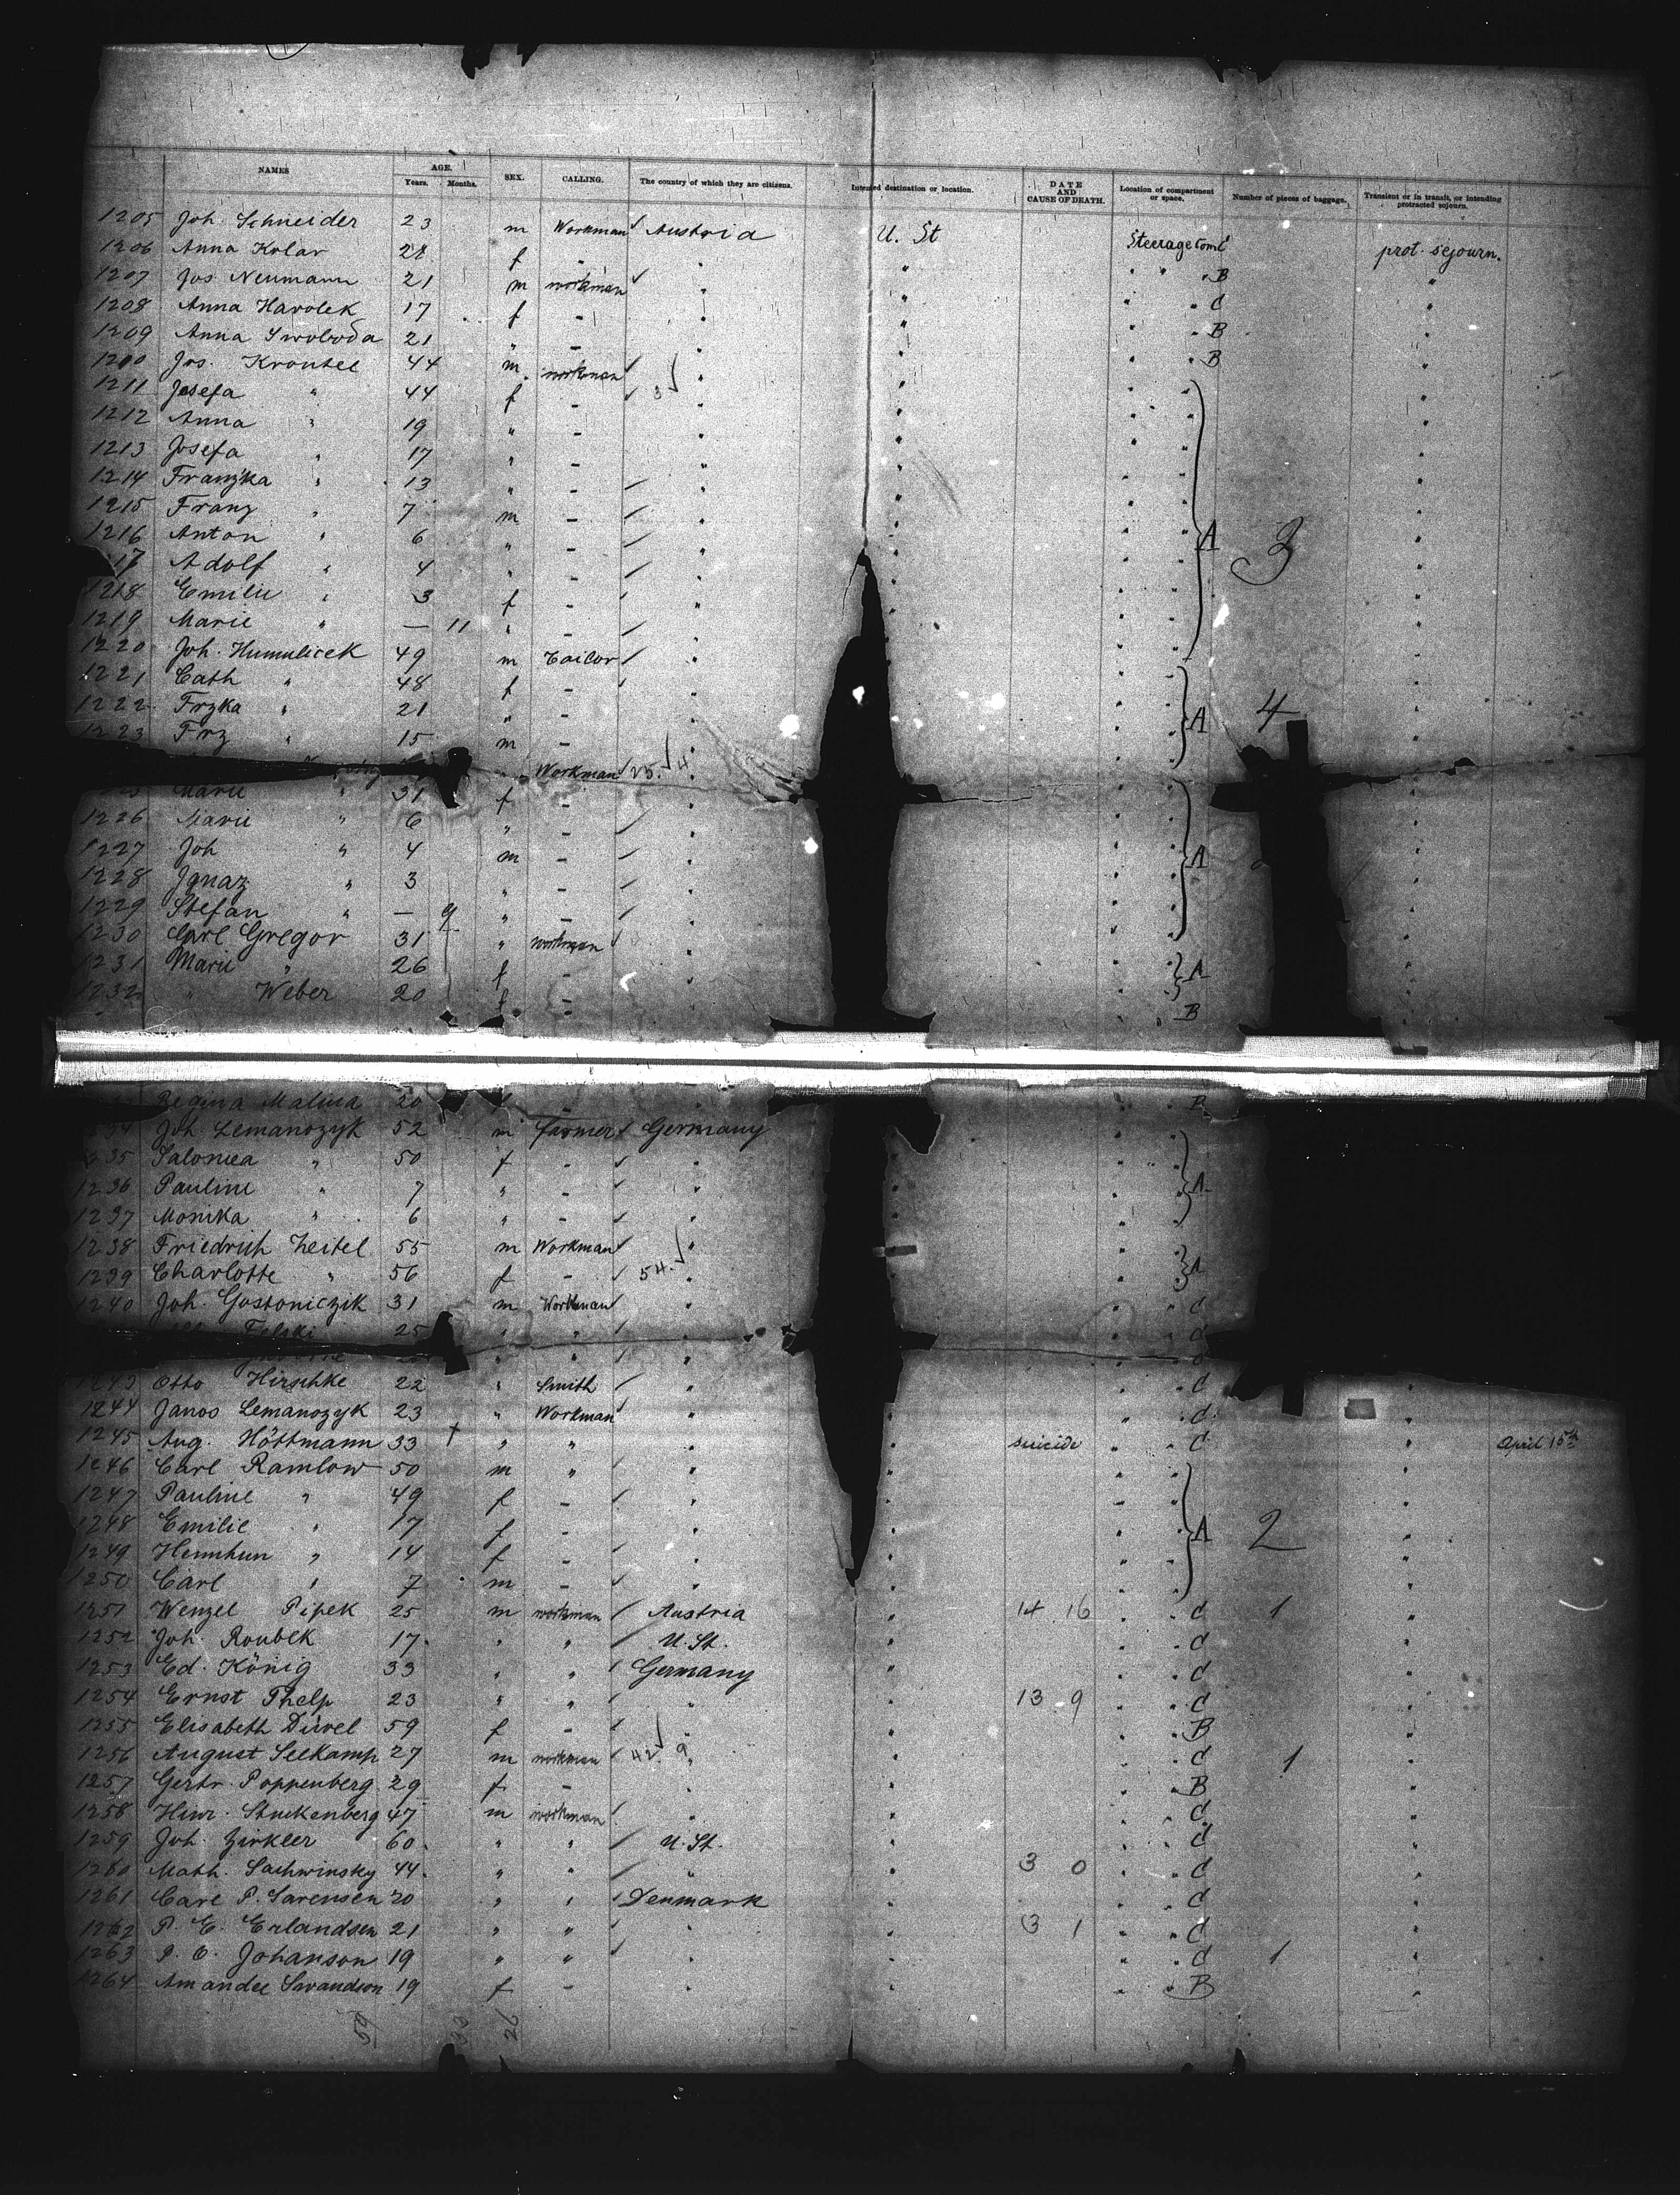 NAMES AGE. Years. Months. SEX. CALLING. The country of which they are citizens. Intended destination or location. DATE AND CAUSE OF DEATH. Location of compartment or space. Number of pieces of baggage. Transient or in transit, or intending protracted sejourn.
1205 Joh. Schneider 23 m Workman Austria U. St Steerage Comt C prot. sejourn.
1206 Anna Kolar 28 f - " " " " B "
1207 Jos Neumann 21 m workman " " " " C "
1208 Anna Havolek 17 f - " " " " B "
1209 Anna Swoboda 21 " - " " " " B "
1210 Jos. Kroutil 44 m workman " " " " "
1211 Josefa " 44 f - 3 " " " " "
1212 Anna " 19 " - " " " " "
1213 Josefa " 17 " - " " " " "
1214 Franzka " 13 " - " " " " "
1215 Franz " 7 m - " " " " A 3 "
1216 Anton " 6 " - " " " " "
17 Adolf " 4 " - " " " " "
1218 Emilie " 3 f - " " " " "
1219 Marie " — 11 " - " " " " "
1220 Joh. Humulicek 49 m Tailor " " " "
1221 Cath " 48 f - " " " "
1222 Frzka " 21 " - " " " A 4 "
1223 Frz " 15 m - " " " "
Workman 25. 4
Marie " 31 f - " " " "
1226 Marie " 6 " - " " " "
1227 Joh " 4 m - " " " A "
1228 Ignaz " 3 " - " " " "
1229 Stefan " — 9 " - " " " "
1230 Carl Gregor 31 " workman " "
1231 Marie " 26 f - " " A "
1232 " Weber 20 f - " " B "
Regina Malina 20 f " " B
34 Joh Lemanozyk 52 m farmer Germany " " "
35 Salomea " 50 f - " " " "
1236 Pauline " 7 " - " " " " A
1237 Monika " 6 " - " " " "
1238 Friedrich Zeitel 55 m Workman " " " "
1239 Charlotte " 56 f - 54. " " " A
1240 Joh. Gostoniczik 31 m Workman " " " " C
Felski 25 " " " " " " C
1243 Otto Hirschke 22 " Smith " " " " C "
1244 Janos Lemanozyk 23 " Workman " " " " C "
1245 Aug. Höttmann 33 † " " " " suicide " " C " April 15th
1246 Carl Ramlow 50 m " " " " " "
1247 Pauline " 49 f - " " " " "
1248 Emilie " 17 f - " " " " A 2 "
1249 " 14 f - " " " " "
1250 Carl " 7 m - " " " " "
1251 Wenzel Pipek 25 m workman Austria " 14 16 " " C 1 "
1252 Joh. Roubek 17 " " U. St. " " " C "
1253 Ed. König 33 " " Germany " " " C "
1254 Ernst Thelp 23 " " " " 13 9 " " C "
1255 Elisabeth Düvel 59 f - " " " " B "
1256 August Seekamp 27 m workman 42 9 " " " " C 1 "
1257 Gertr. Poppenberg 29 f - " " " " B "
1258 Hinr. Stuckenberg 47 m workman " " " " C "
1259 Joh. Zirkler 60 " " U. St. " " " C "
1260 Math. Sachwinsky 44 " " " " 3 0 " " C "
1261 Carl P. Sarensen 20 " " Denmark " " " C "
1262 P. E. Erlandsen 21 " " " " 3 1 " " C "
1263 P. O. Johanson 19 " " " " " " C 1 "
1264 Amandee Swandson 19 f - " " " " B "
59 33 26